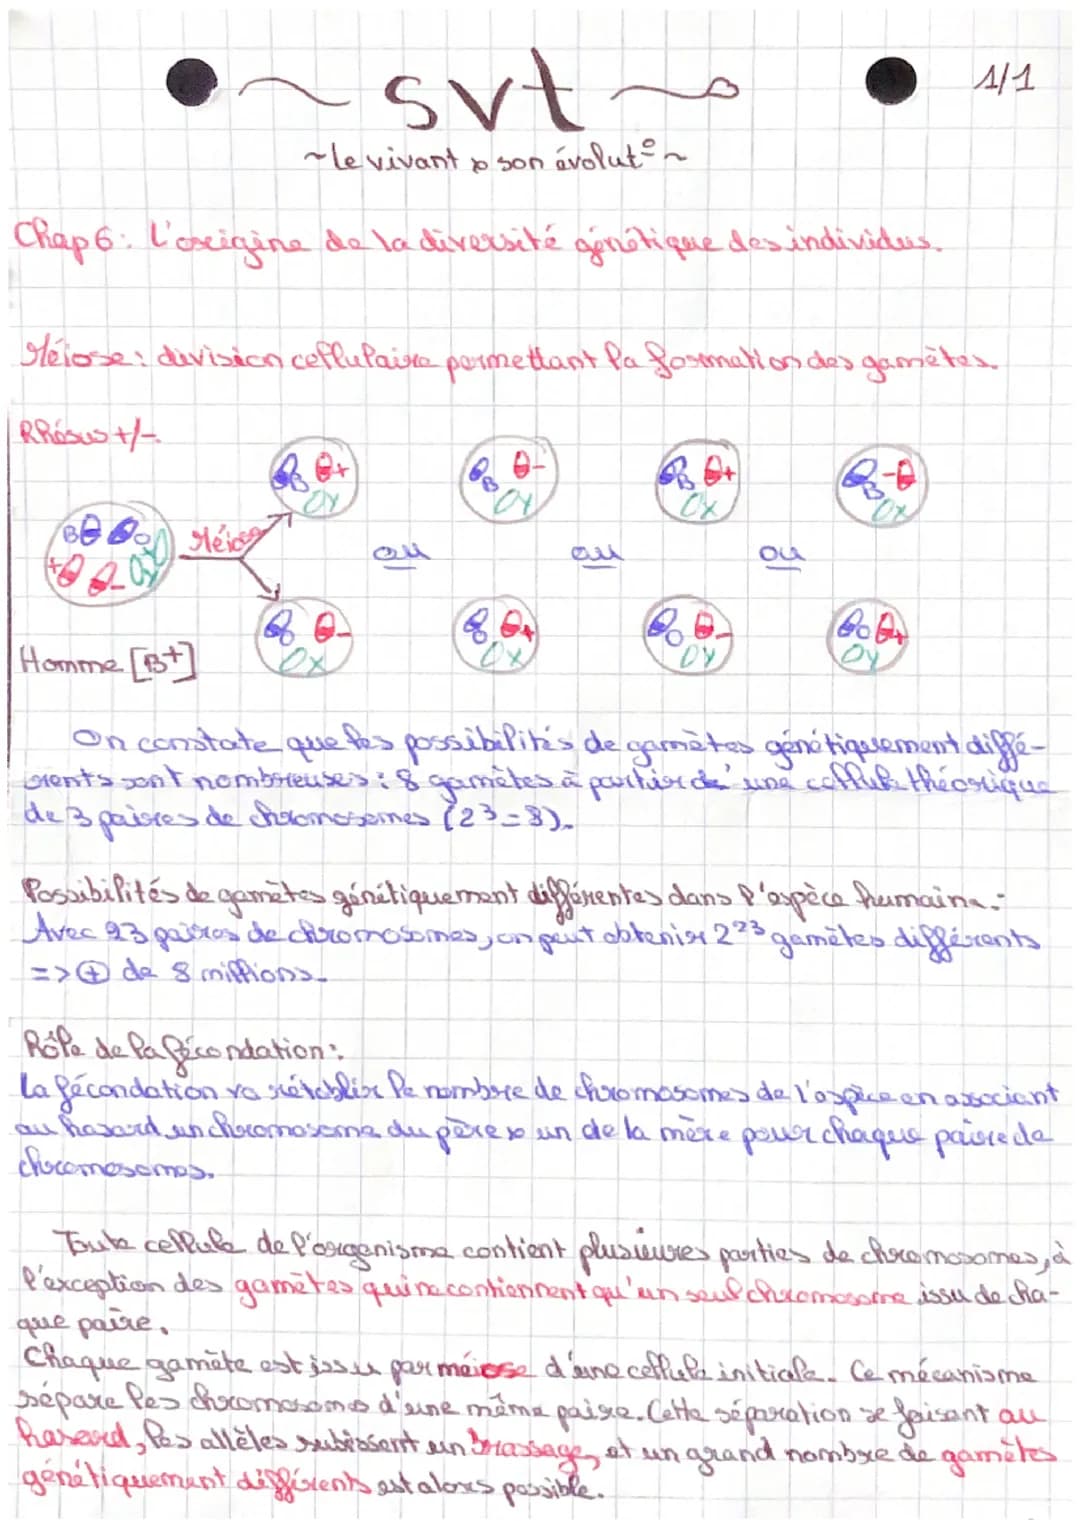 ~ svt ~
1/1
~ Le vivant & son évolut° ~
Chap 6 : L'origine de la diversité génétique des individus.
Méiose : division cellulaire permettant la formation des gamètes.
Rhésus +/-
B + - B - + B + B -
OY OY OX OX
B O Méiose
ou ou ou
+ - OY
- + O - O +
OX OX OY OY
Homme [B+]
On constate que les possibilités de gamètes génétiquement diffé-
rents sont nombreuses : 8 gamètes à partir d'une cellule théorique
de 3 paires de chromosomes (2³=8).
Possibilités de gamètes génétiquement différentes dans l'espèce humaine :
Avec 23 paires de chromosomes, on peut obtenir 2²³ gamètes différents
=> ⊕ de 8 millions.
Rôle de la fécondation :
La fécondation va rétablir le nombre de chromosomes de l'espèce en associant
au hasard un chromosome du père & un de la mère pour chaque paire de
chromosomes.
Toute cellule de l'organisme contient plusieures parties de chromosomes, à
l'exception des gamètes qui ne contiennent qu'un seul chromosome issu de cha-
que paire.
Chaque gamète est issu par méiose d'une cellule initiale. Ce mécanisme
sépare les chromosomes d'une même paire. Cette séparation se faisant au
hasard, les allèles subissent un brassage, et un grand nombre de gamètes
génétiquement différents est alors possible.